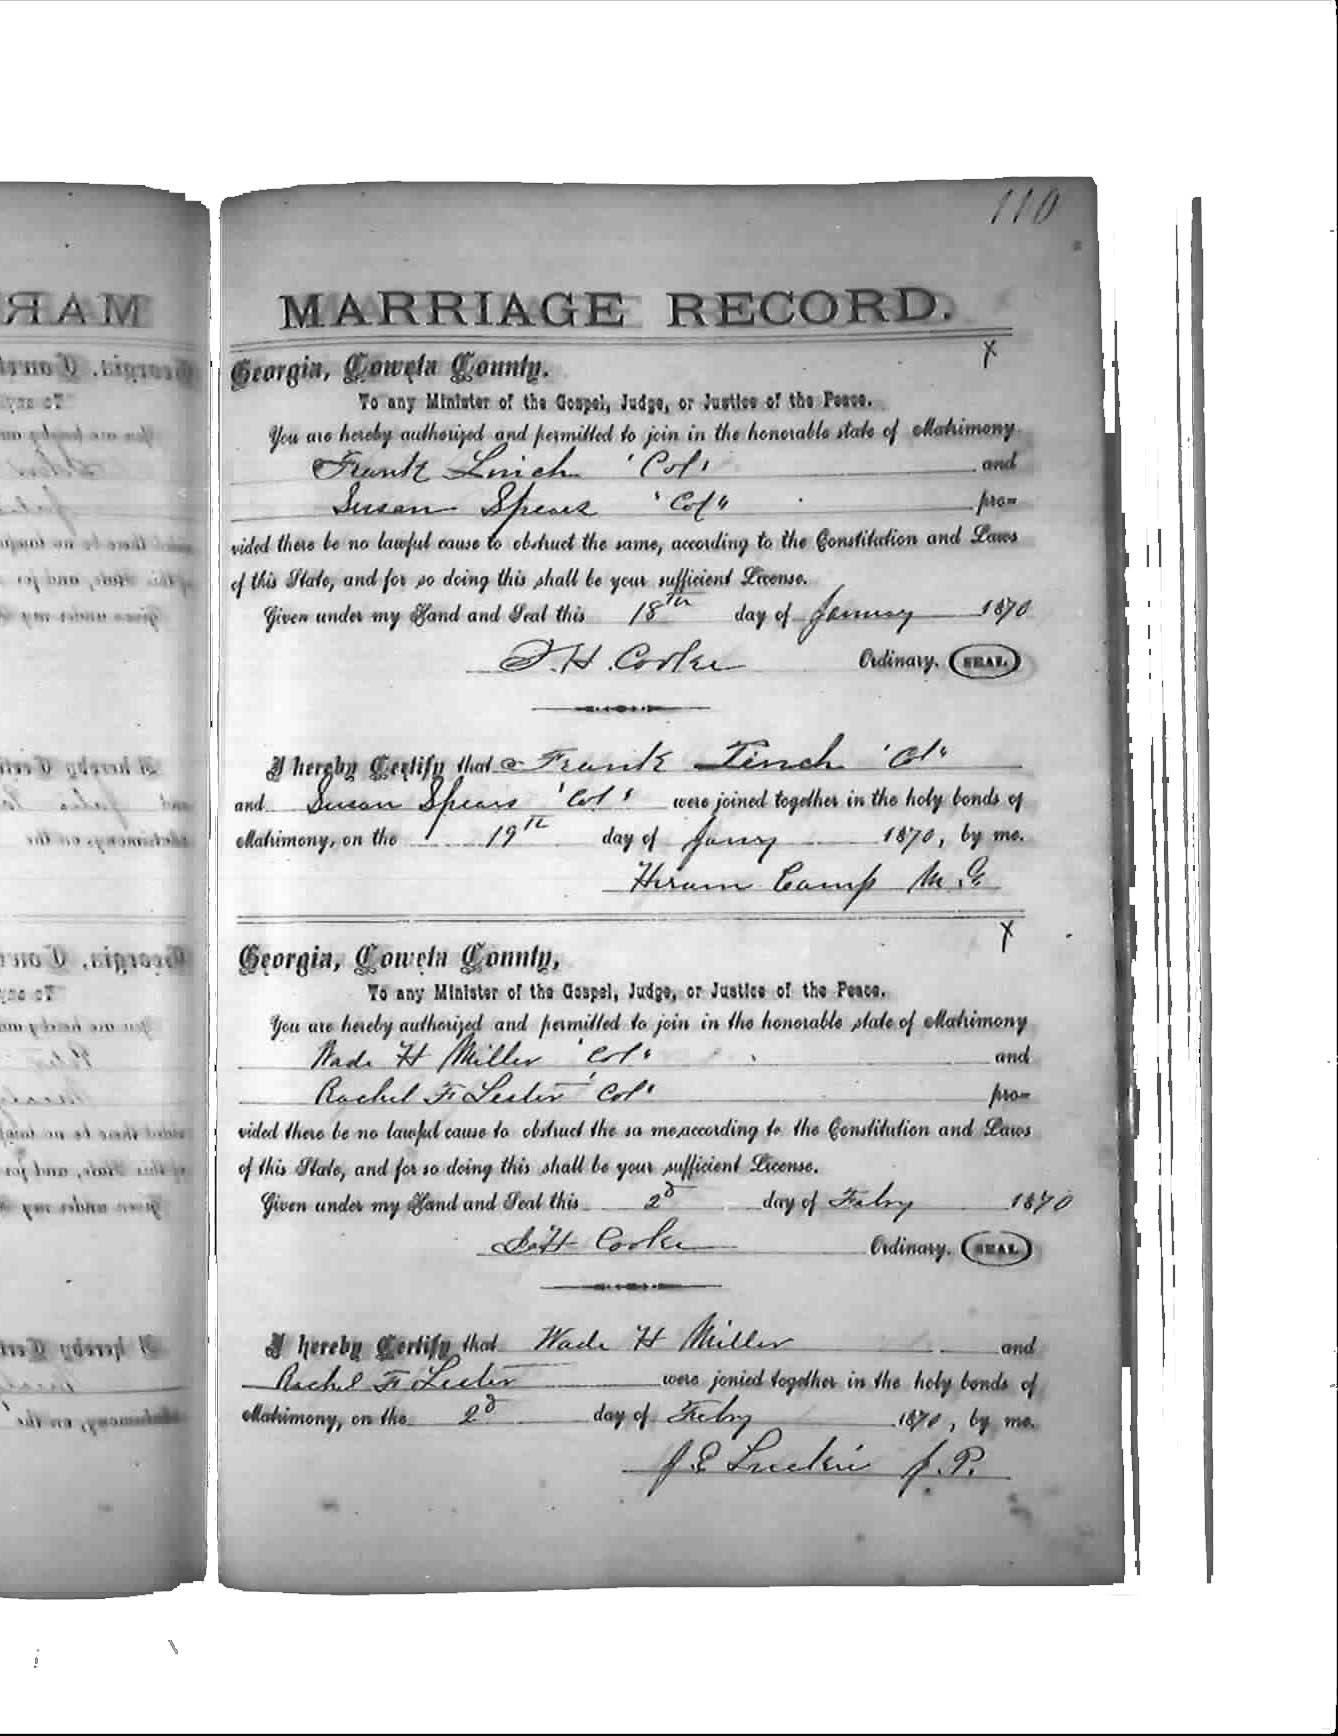 110
MARRIAGE RECORD.
X
Georgia, Coweta County.
To any Minister of the Gospel, Judge, or Justice of the Peace.
You are hereby authorized and permitted to join in the honorable state of Matrimony
Frank Linch 'Col' and
Susan Spears 'Col" pro=
vided there be no lawful cause to obstruct the same, according to the Constitution and Laws
of this State, and for so doing this shall be your sufficient License.
Given under my Hand and Seal this 18th day of January 1870
J. H. Cooke Ordinary. SEAL
I hereby Certify that Frank Linch 'Col"
and Susan Spears 'Col' were joined together in the holy bonds of
Matrimony, on the 19th day of Jany 1870, by me.
Hiram Camp M. G.
X
Georgia, Coweta County,
To any Minister of the Gospel, Judge, or Justice of the Peace.
You are hereby authorized and permitted to join in the honorable state of Matrimony
Wade H Miller 'Col' and
Rachel F Lester 'Col' pro=
vided there be no lawful cause to obstruct the sa me,according to the Constitution and Laws
of this State, and for so doing this shall be your sufficient License.
Given under my Hand and Seal this 2d day of Feby 1870
J. H Cooke Ordinary. SEAL
I hereby Certify that Wade H Miller and
Rachel F Lester were jonied together in the holy bonds of
Matrimony, on the 2d day of Feby 1870, by me.
J. E. J. P.